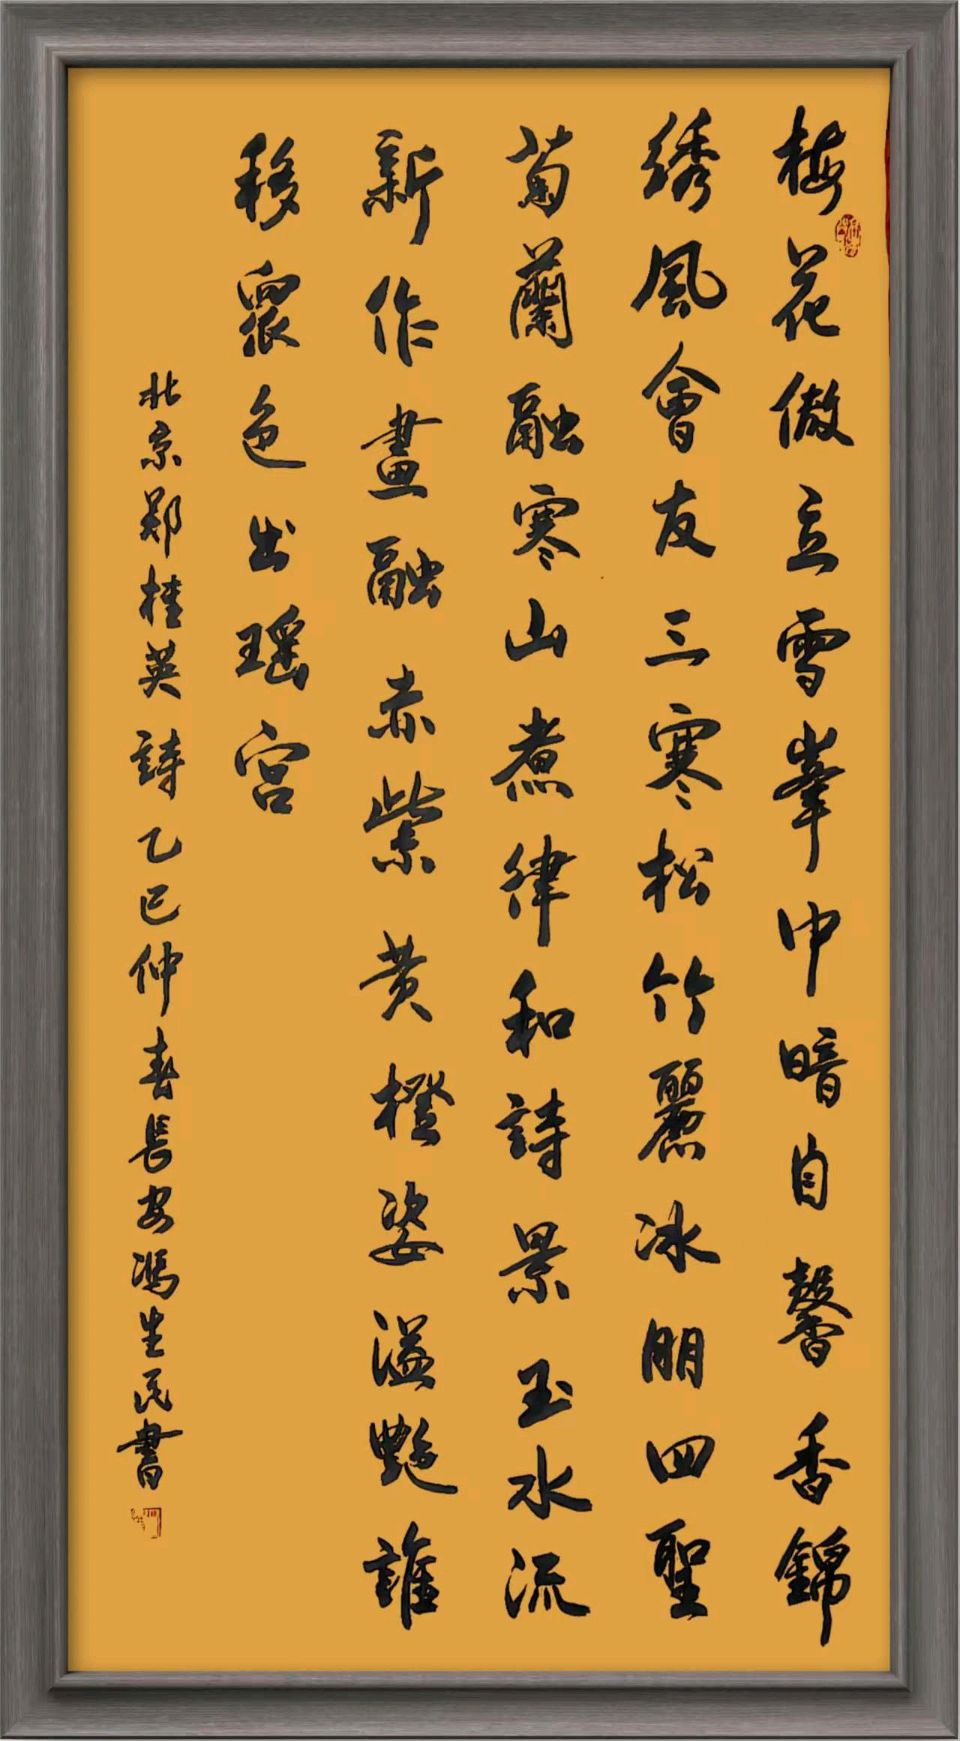 梅花傲立雪峯中暗自馨香錦
綉風會友三寒松竹麗冰朋四聖
菊蘭融寒山煮律和詩景玉水流
新作畫融赤紫黄橙姿溢艷誰
移眾色出瑶宫
北京郑桂英詩乙巳仲春長安馮生民書